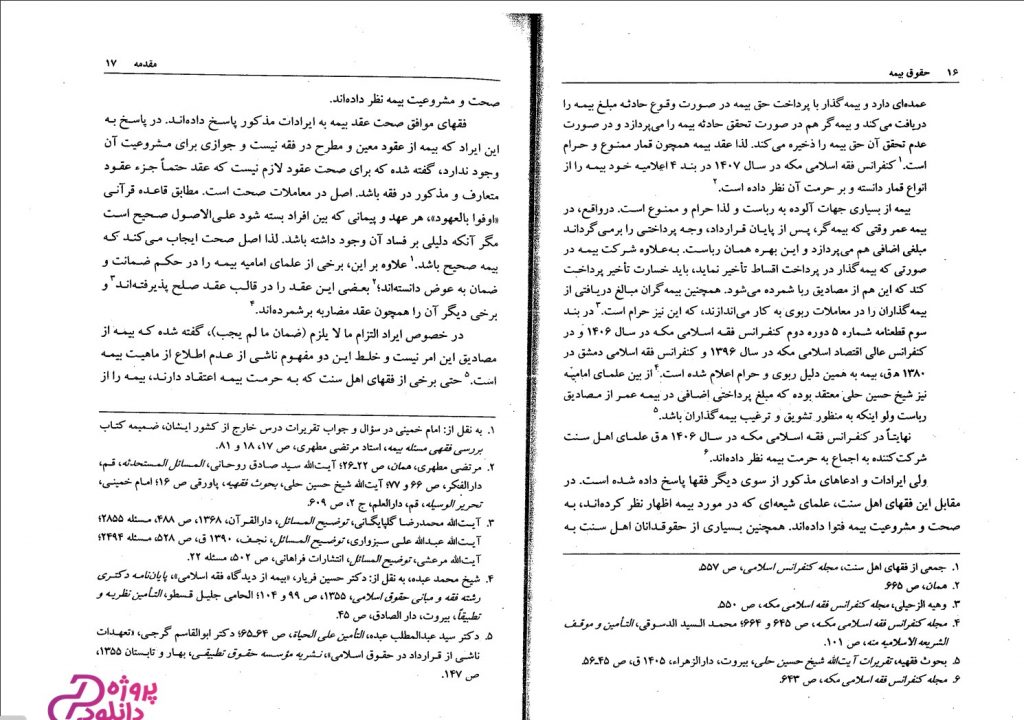 ۱۶ حقوق بیمه
عمده‌ای دارد و بیمه‌گذار با پرداخت حق بیمه در صورت وقوع حادثه مبلغ بیمه را
دریافت می‌کند و بیمه‌گر هم در صورت تحقق حادثه بیمه را می‌پردازد و در صورت
عدم تحقق آن حق بیمه را ذخیره می‌کند. لذا عقد بیمه همچون قمار ممنوع و حرام
است.۱ کنفرانس فقه اسلامی مکه در سال ۱۴۰۷ در بند ۴ اعلامیه خود بیمه را از
انواع قمار دانسته و بر حرمت آن نظر داده است.۲
بیمه از بسیاری جهات آلوده به رباست و لذا حرام و ممنوع است. درواقع، در
بیمه عمر وقتی که بیمه‌گر، پس از پایان قرارداد، وجه پرداختی را برمی‌گرداند
مبلغی اضافی هم می‌پردازد و این بهره همان رباست. به‌علاوه شرکت بیمه در
صورتی که بیمه‌گذار در پرداخت اقساط تأخیر نماید، باید خسارت تأخیر پرداخت
کند که این هم از مصادیق ربا شمرده می‌شود. همچنین بیمه‌گران مبالغ دریافتی از
بیمه‌گذاران را در معاملات ربوی به کار می‌اندازند، که این نیز حرام است.۳ در بند
سوم قطعنامه شماره ۵ دوره دوم کنفرانس فقه اسلامی مکه در سال ۱۴۰۶ و در
کنفرانس عالی اقتصاد اسلامی مکه در سال ۱۳۹۶ و کنفرانس فقه اسلامی دمشق در
۱۳۸۰ ه‍.ق، بیمه به همین دلیل ربوی و حرام اعلام شده است.۴ از بین علمای امامیه
نیز شیخ حسین حلی معتقد بوده که مبلغ پرداختی اضافی در بیمه عمر از مصادیق
رباست ولو اینکه به منظور تشویق و ترغیب بیمه‌گذاران باشد.۵
نهایتاً در کنفرانس فقه اسلامی مکه در سال ۱۴۰۶ ه‍.ق علمای اهل سنت
شرکت‌کننده به اجماع به حرمت بیمه نظر داده‌اند.۶
ولی ایرادات و ادعاهای مذکور از سوی دیگر فقها پاسخ داده شده است. در
مقابل این فقهای اهل سنت، علمای شیعه‌ای که در مورد بیمه اظهار نظر کرده‌اند، به
صحت و مشروعیت بیمه فتوا داده‌اند. همچنین بسیاری از حقوقدانان اهل سنت به
۱. جمعی از فقهای اهل سنت، مجله کنفرانس اسلامی، ص ۵۵۷.
۲. همان، ص ۶۶۵.
۳. وهبه الزحیلی، مجله کنفرانس فقه اسلامی مکه، ص ۵۵۰.
۴. مجله کنفرانس فقه اسلامی مکه، ص ۶۴۵ و ۶۶۴؛ محمد السید الدسوقی، التأمین و موقف
الشریعه الاسلامیه منه، ص ۱۰۱.
۵. بحوث فقهیه، تقریرات آیت‌الله شیخ حسین حلی، بیروت، دارالزهراء، ۱۴۰۵ ق، ص ۴۵ـ۵۶.
۶. مجله کنفرانس فقه اسلامی مکه، ص ۶۴۳.
مقدمه ۱۷
صحت و مشروعیت بیمه نظر داده‌اند.
فقهای موافق صحت عقد بیمه به ایرادات مذکور پاسخ داده‌اند. در پاسخ به
این ایراد که بیمه از عقود معین و مطرح در فقه نیست و جوازی برای مشروعیت آن
وجود ندارد، گفته شده که برای صحت عقود لازم نیست که عقد حتماً جزء عقود
متعارف و مذکور در فقه باشد. اصل در معاملات صحت است. مطابق قاعده قرآنی
«اوفوا بالعهود»، هر عهد و پیمانی که بین افراد بسته شود علی‌الاصول صحیح است
مگر آنکه دلیلی بر فساد آن وجود داشته باشد. لذا اصل صحت ایجاب می‌کند که
بیمه صحیح باشد.۱ علاوه بر این، برخی از علمای امامیه بیمه را در حکم ضمانت و
ضمان به عوض دانسته‌اند؛۲ بعضی این عقد را در قالب عقد صلح پذیرفته‌اند۳ و
برخی دیگر آن را همچون عقد مضاربه برشمرده‌اند.۴
در خصوص ایراد التزام ما لا یلزم (ضمان ما لم یجب)، گفته شده که بیمه از
مصادیق این امر نیست و خلط این دو مفهوم ناشی از عدم اطلاع از ماهیت بیمه
است.۵ حتی برخی از فقهای اهل سنت که به حرمت بیمه اعتقاد دارند، بیمه را از
۱. به نقل از: امام خمینی در سؤال و جواب تقریرات درس خارج از کشور ایشان، ضمیمه کتاب
بررسی فقهی مسئله بیمه، استاد مرتضی مطهری، ص ۱۷، ۱۸ و ۸۱.
۲. مرتضی مطهری، همان، ص ۲۲ـ۲۶؛ آیت‌الله سید صادق روحانی، المسائل المستحدثه، قم،
دارالفکر، ص ۶۶ و ۷۷؛ آیت‌الله شیخ حسین حلی، بحوث فقهیه، پاورقی ص ۱۶؛ امام خمینی،
تحریر الوسیله، قم، دارالعلم، ج ۲، ص ۶۰۹.
۳. آیت‌الله محمدرضا گلپایگانی، توضیح المسائل، دارالقرآن، ۱۳۶۸، ص ۴۸۸، مسئله ۲۸۵۵؛
آیت‌الله عبدالله علی سبزواری، توضیح المسائل، نجف، ۱۳۹۰ ق، ص ۵۲۸، مسئله ۲۴۹۴؛
آیت‌الله مرعشی، توضیح المسائل، انتشارات فراهانی، ص ۵۰۲، مسئله ۲۲.
۴. شیخ محمد عبده، به نقل از: دکتر حسین فریار، «بیمه از دیدگاه فقه اسلامی»، پایان‌نامه دکتری
رشته فقه و مبانی حقوق اسلامی، ۱۳۵۵، ص ۹۹ و ۱۰۴؛ الحامی جلیل قسطو، التأمین نظریه و
تطبیقاً، بیروت، دار الصادق، ص ۴۵.
۵. دکتر سید عبدالمطلب عبده، التأمین علی الحیاة، ص ۶۴ـ۶۵؛ دکتر ابوالقاسم گرجی، «تعهدات
ناشی از قرارداد در حقوق اسلامی»، نشریه مؤسسه حقوق تطبیقی، بهار و تابستان ۱۳۵۵،
ص ۱۴۷.
پروژه
دانلود